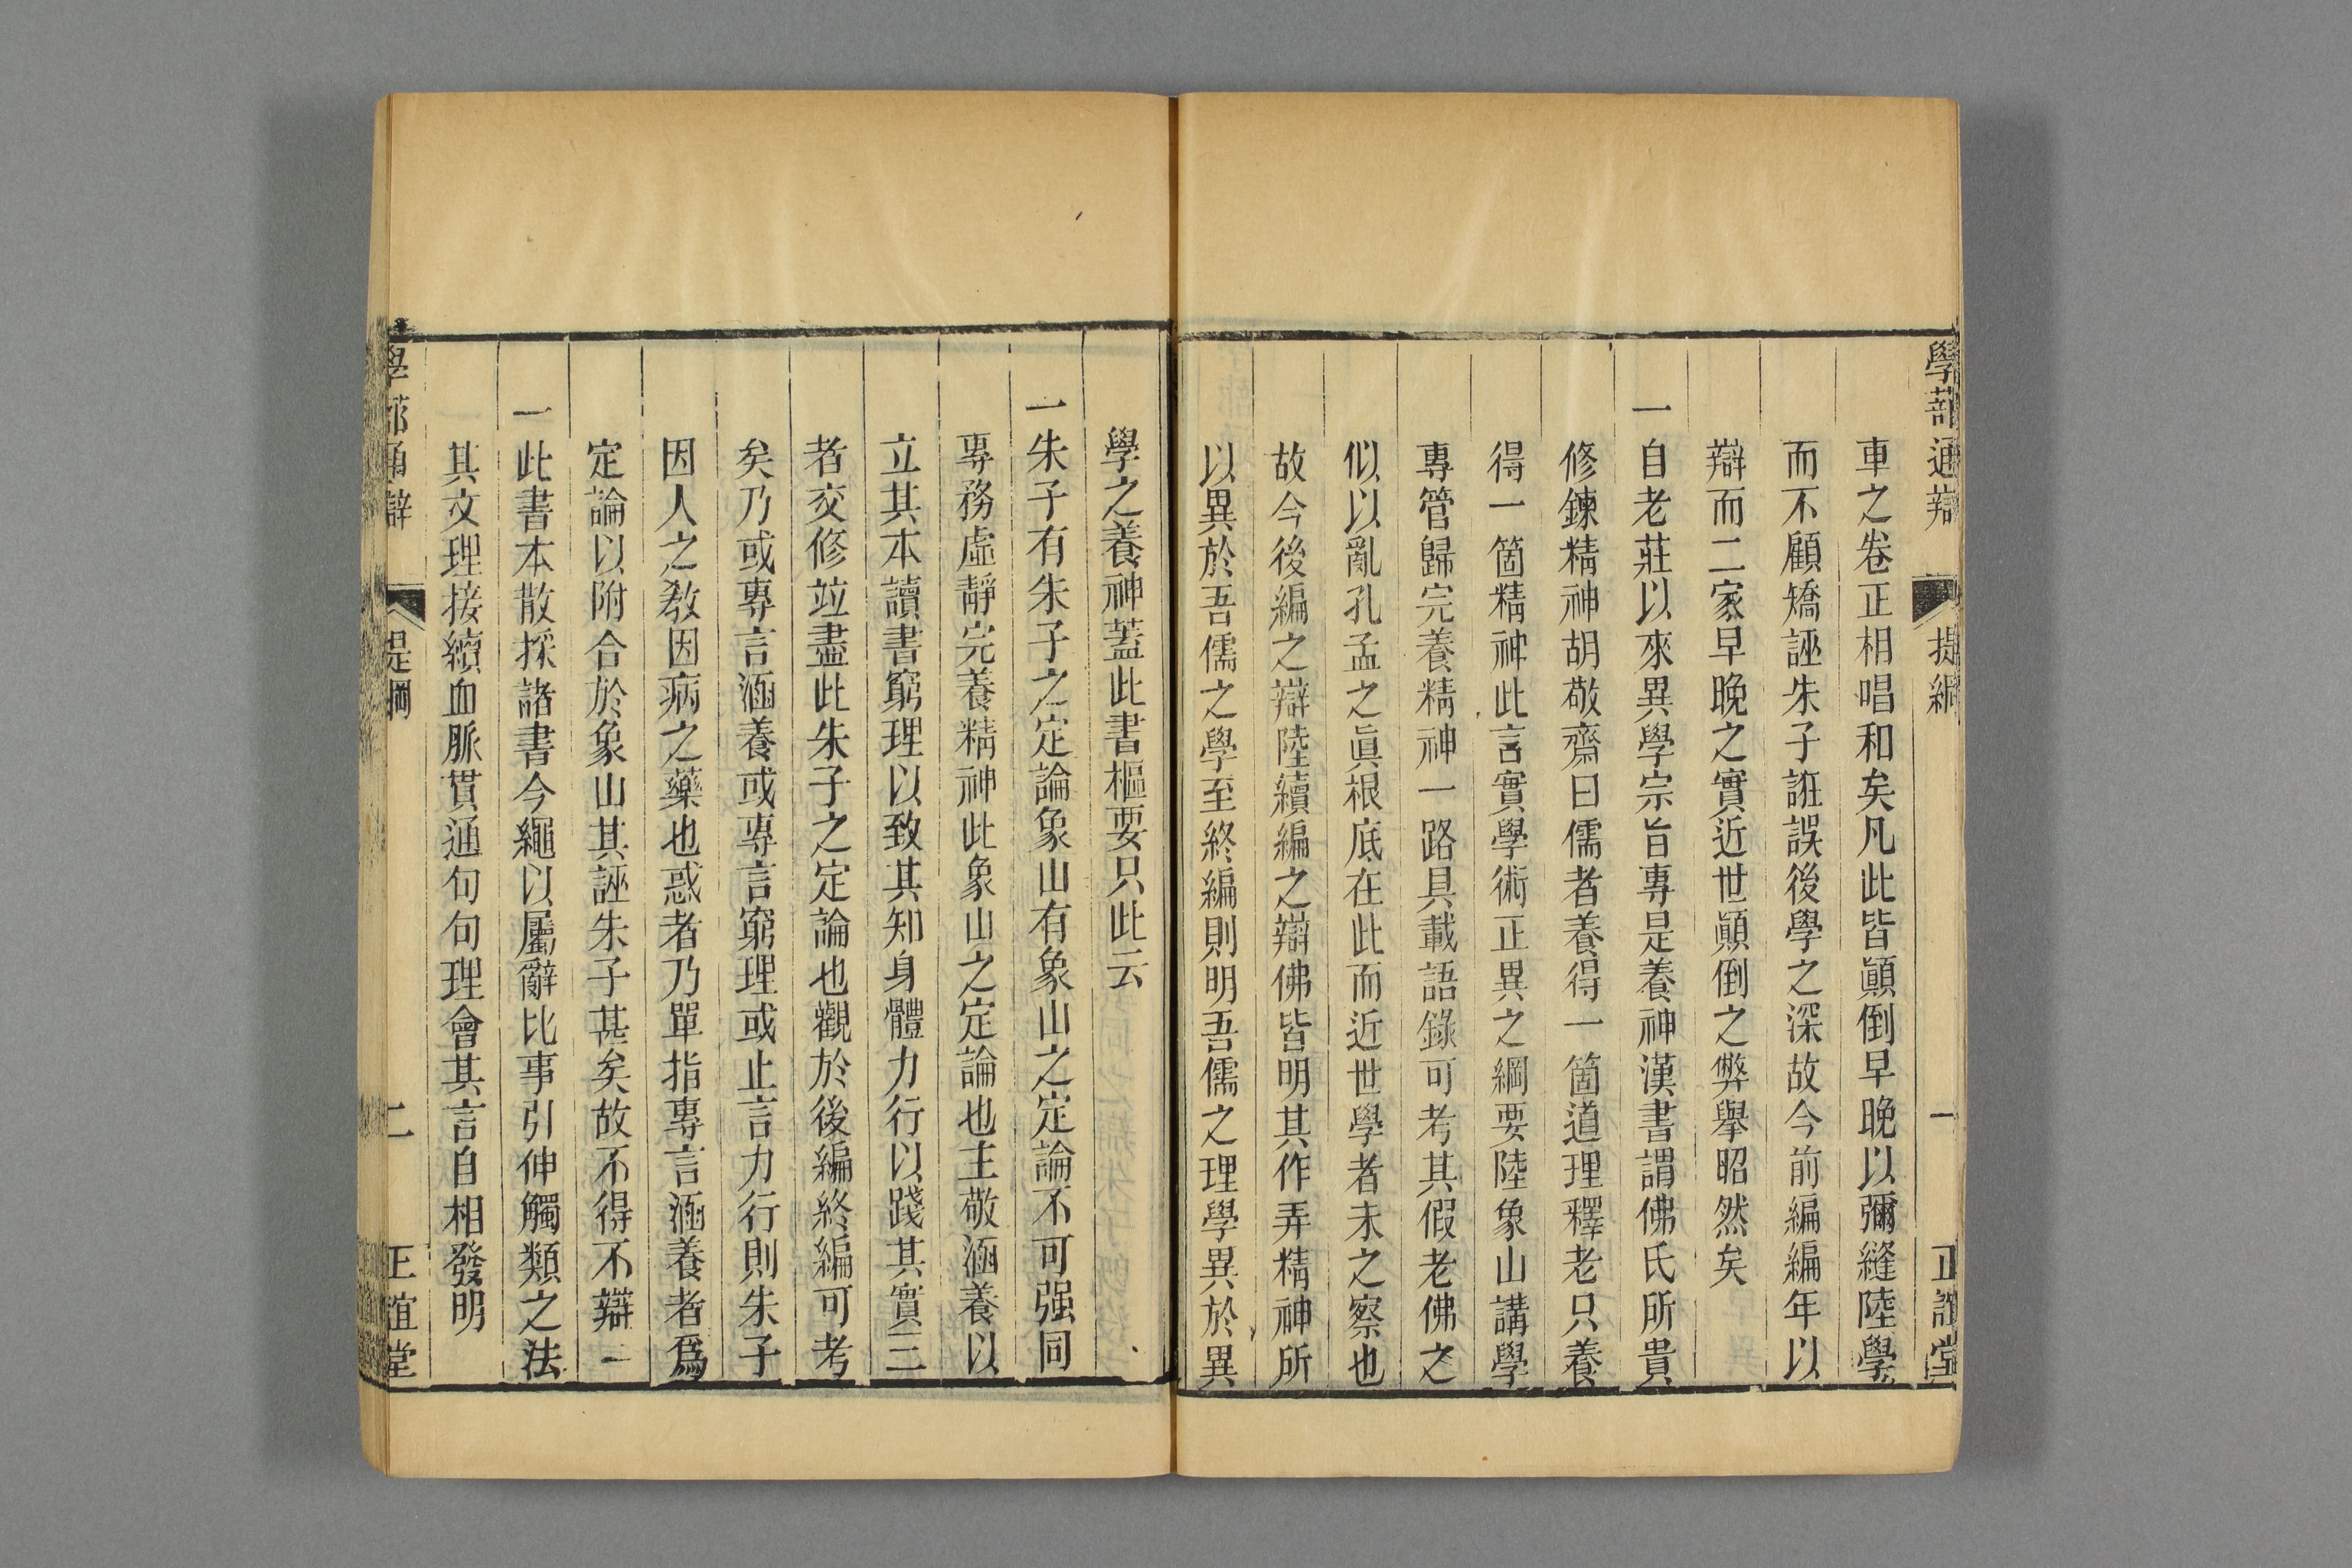 學蔀通辯 提綱 一 正誼堂
車之卷正相唱和矣凡此皆顚倒早晚以彌縫陸學
而不顧矯誣朱子誑誤後學之深故今前編編年以
辯而二家早晚之實近世顚倒之弊舉昭然矣
一自老莊以來異學宗旨專是養神漢書謂佛氏所貴
修鍊精神胡敬齋曰儒者養得一箇道理釋老只養
得一箇精神此言實學術正異之綱要陸象山講學
專管歸完養精神一路具載語錄可考其假老佛之
似以亂孔孟之眞根底在此而近世學者未之察也
故今後編之辯陸續編之辯佛皆明其作弄精神所
以異於吾儒之學至終編則明吾儒之理學異於異
學之養神蓋此書樞要只此云
一朱子有朱子之定論象山有象山之定論不可强同
專務虛靜完養精神此象山之定論也主敬涵養以
立其本讀書窮理以致其知身體力行以踐其實三
者交修竝盡此朱子之定論也觀於後編終編可考
矣乃或專言涵養或專言窮理或止言力行則朱子
因人之教因病之藥也惑者乃單指專言涵養者爲
定論以附合於象山其誣朱子甚矣故不得不辯
一此書本散採諸書今繩以屬辭比事引伸觸類之法
其文理接續血脈貫通句句理會其言自相發明
學蔀通辯 提綱 二 正誼堂